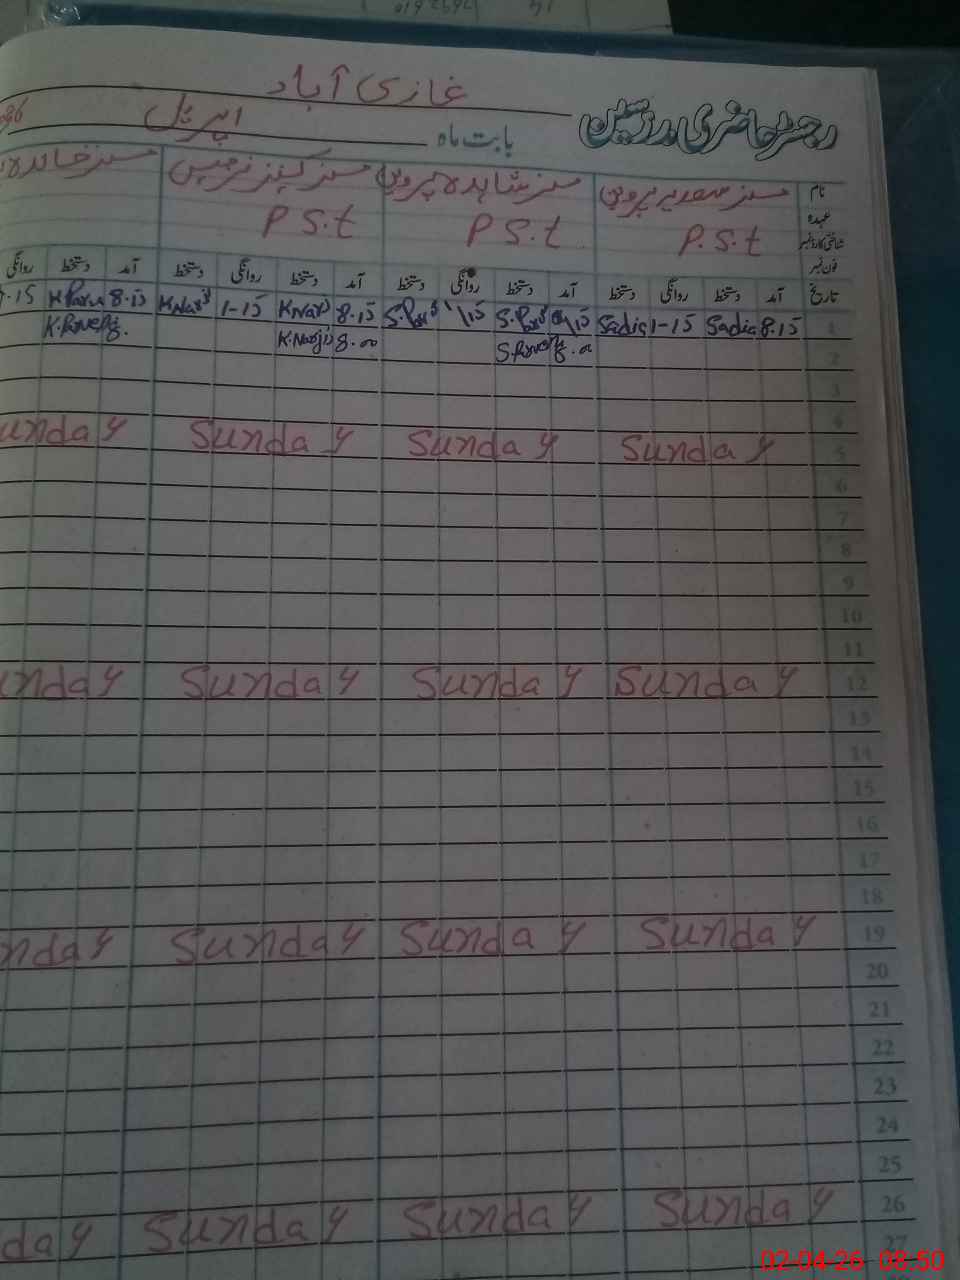 غازی آباد
رجسٹر حاضری مدرسین
بابت ماہ اپریل
نام مسز سعدیہ پروین مسز شاہدہ پروین مسز کنیز نرجیس مسز خالدہ
عہدہ P.S.t P S.t P S.t
شناختی کارڈ نمبر
فون نمبر
تاریخ آمد دستخط روانگی دستخط آمد دستخط روانگی دستخط آمد دستخط روانگی دستخط آمد دستخط روانگی
1 8.15 Sadia 1-15 Sadia 8.15 1-15 8.15
2 8.00
3
4
5 Sunday Sunday Sunday Sunday
6
7
8
9
10
11
12 Sunday Sunday Sunday Sunday
13
14
15
16
17
18
19 Sunday Sunday Sunday Sunday
20
21
22
23
24
25
26 Sunday Sunday Sunday Sunday
27
02-04-26 08:50